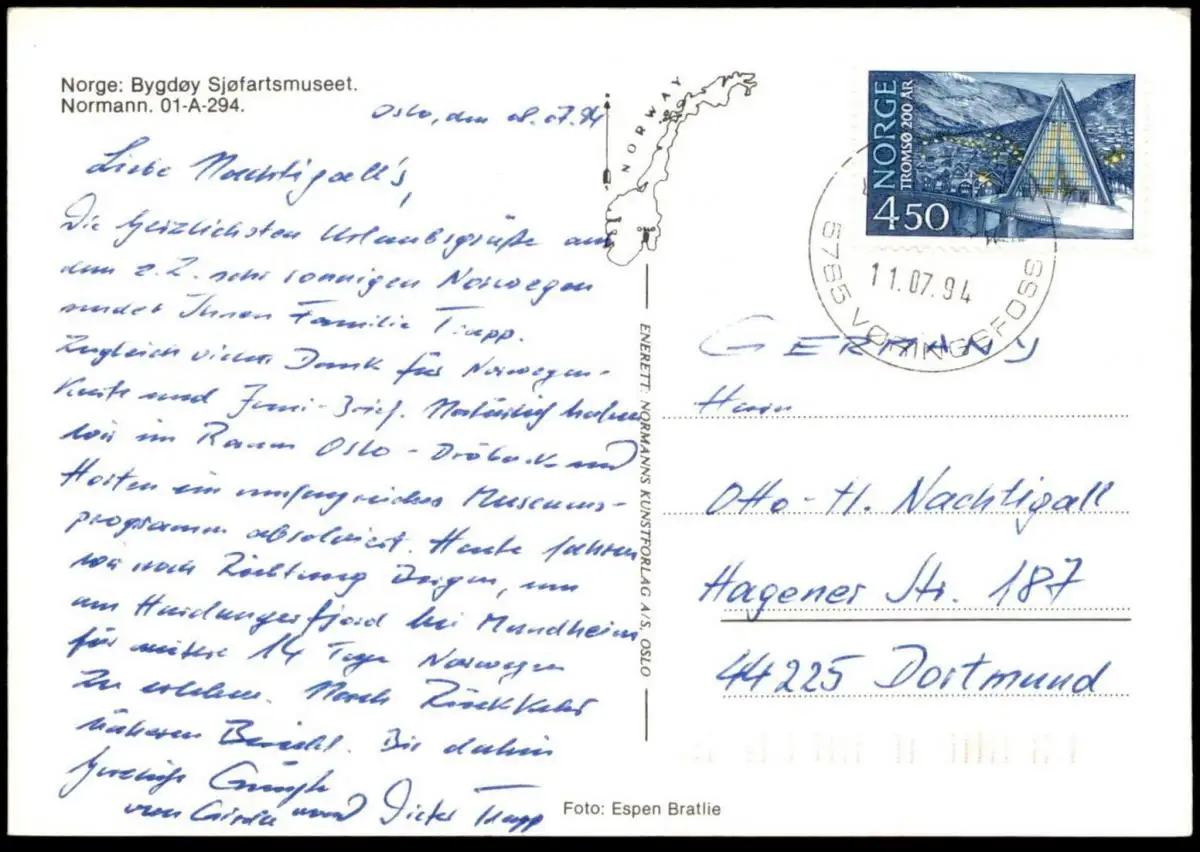 Norge: Bygdøy Sjøfartsmuseet.
Normann. 01-A-294.
Oslo, den 08.07.94
Liebe Nachtigall's,
Die herzlichsten Urlaubsgrüße aus
dem z.Z. sehr sonnigen Norwegen
sendet Ihnen Familie Trapp.
Zugleich vielen Dank für Norwegen-
Karte und Juni-Brief. Natürlich haben
wir im Raum Oslo - Dröbak und
Horten ein umfangreiches Museums-
programm absolviert. Heute fahren
wir nach Richtung Bergen, um
am Hardangerfjord bei Mundheim
für unsere 14 Tage Norwegen
zu erleben. Nach Rückkehr
näheren Bericht. Bis dahin
herzliche Grüße
von und Dieter Trapp
NORWAY
OSLO
ENERETT: NORMANNS KUNSTFORLAG A/S, OSLO
Foto: Espen Bratlie
NORGE
TROMSØ 200 ÅR
450
5785 VØRINGSFOSS
11.07.94
GERMANY
Herrn
Otto-H. Nachtigall
Hagener Str. 187
44225 Dortmund